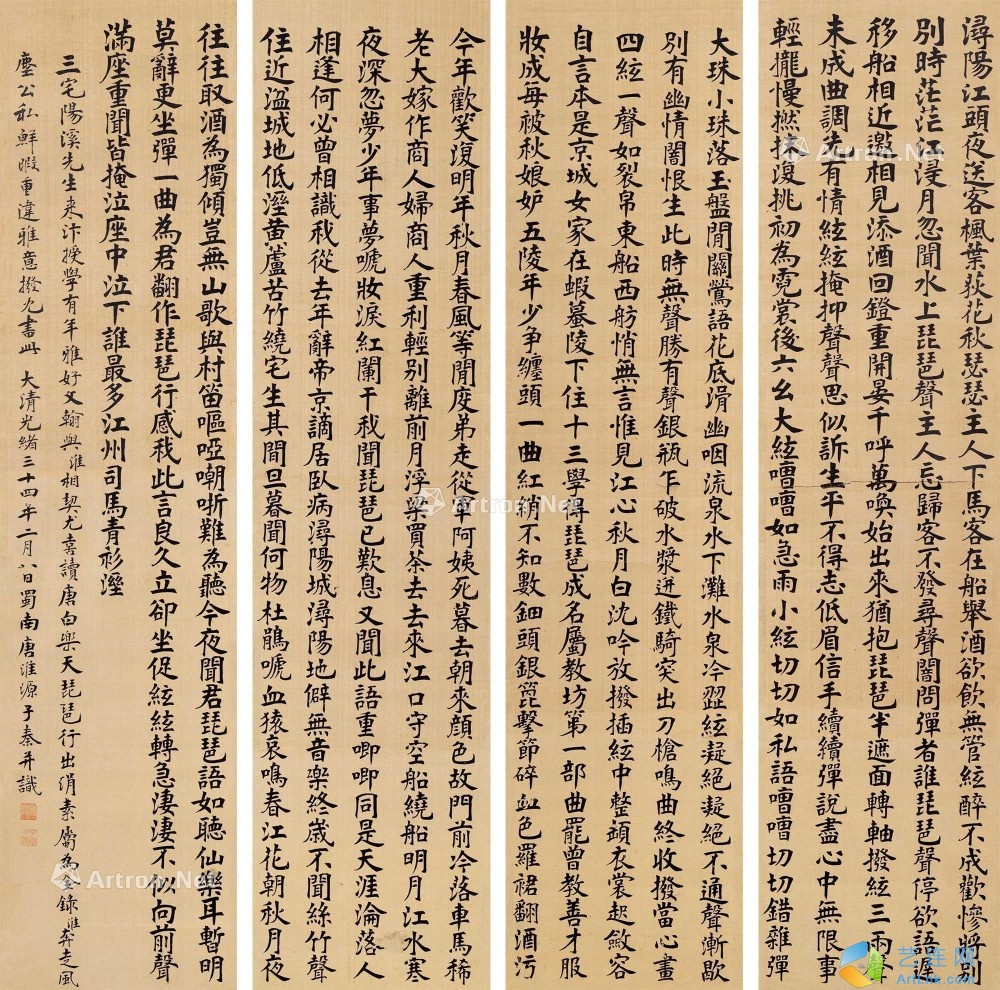 潯陽江頭夜送客楓葉荻花秋瑟瑟主人下馬客在船舉酒欲飲無管絃醉不成歡慘將別
別時茫茫江浸月忽聞水上琵琶聲主人忘歸客不發尋聲闇問彈者誰琵琶聲停欲語遲
移船相近邀相見添酒回鐙重開宴千呼萬喚始出來猶抱琵琶半遮面轉軸撥絃三兩聲
未成曲調先有情絃絃掩抑聲聲思似訴生平不得志低眉信手續續彈說盡心中無限事
輕攏慢撚抹復挑初為霓裳後六幺大絃嘈嘈如急雨小絃切切如私語嘈嘈切切錯雜彈
大珠小珠落玉盤閒關鶯語花底滑幽咽流泉水下灘水泉冷澀絃凝絕凝絕不通聲漸歇
別有幽情闇恨生此時無聲勝有聲銀瓶乍破水漿迸鐵騎突出刀槍鳴曲終收撥當心畫
四絃一聲如裂帛東船西舫悄無言惟見江心秋月白沈吟放撥插絃中整頓衣裳起斂容
自言本是京城女家在蝦蟇陵下住十三學得琵琶成名屬教坊第一部曲罷曾教善才服
妝成每被秋娘妒五陵年少爭纏頭一曲紅綃不知數鈿頭銀篦擊節碎血色羅裙翻酒污
今年歡笑復明年秋月春風等閒度弟走從軍阿姨死暮去朝來顏色故門前冷落車馬稀
老大嫁作商人婦商人重利輕別離前月浮梁買茶去去來江口守空船繞船明月江水寒
夜深忽夢少年事夢嗁妝淚紅闌干我聞琵琶已歎息又聞此語重唧唧同是天涯淪落人
相逢何必曾相識我從去年辭帝京謫居臥病潯陽城潯陽地僻無音樂終歲不聞絲竹聲
住近湓城地低溼黃蘆苦竹繞宅生其間旦暮聞何物杜鵑嗁血猿哀鳴春江花朝秋月夜
往往取酒為獨傾豈無山歌與村笛嘔啞嘲哳難為聽今夜聞君琵琶語如聽仙樂耳暫明
莫辭更坐彈一曲為君翻作琵琶行感我此言良久立卻坐促絃絃轉急淒淒不似向前聲
滿座重聞皆掩泣座中泣下誰最多江州司馬青衫溼
三宅陽溪先生來汴授學有年雅好文翰與淮相契尤喜讀唐白樂天琵琶行出絹素屬為全錄淮奔走風
塵公私鮮暇重違雅意撥冗書此 大清光緒三十四年二月八日蜀南唐淮源子秦并識
Artron.Net
Artron.Net
Artron.Net
Artron.Net
Artron.Net
艺连网